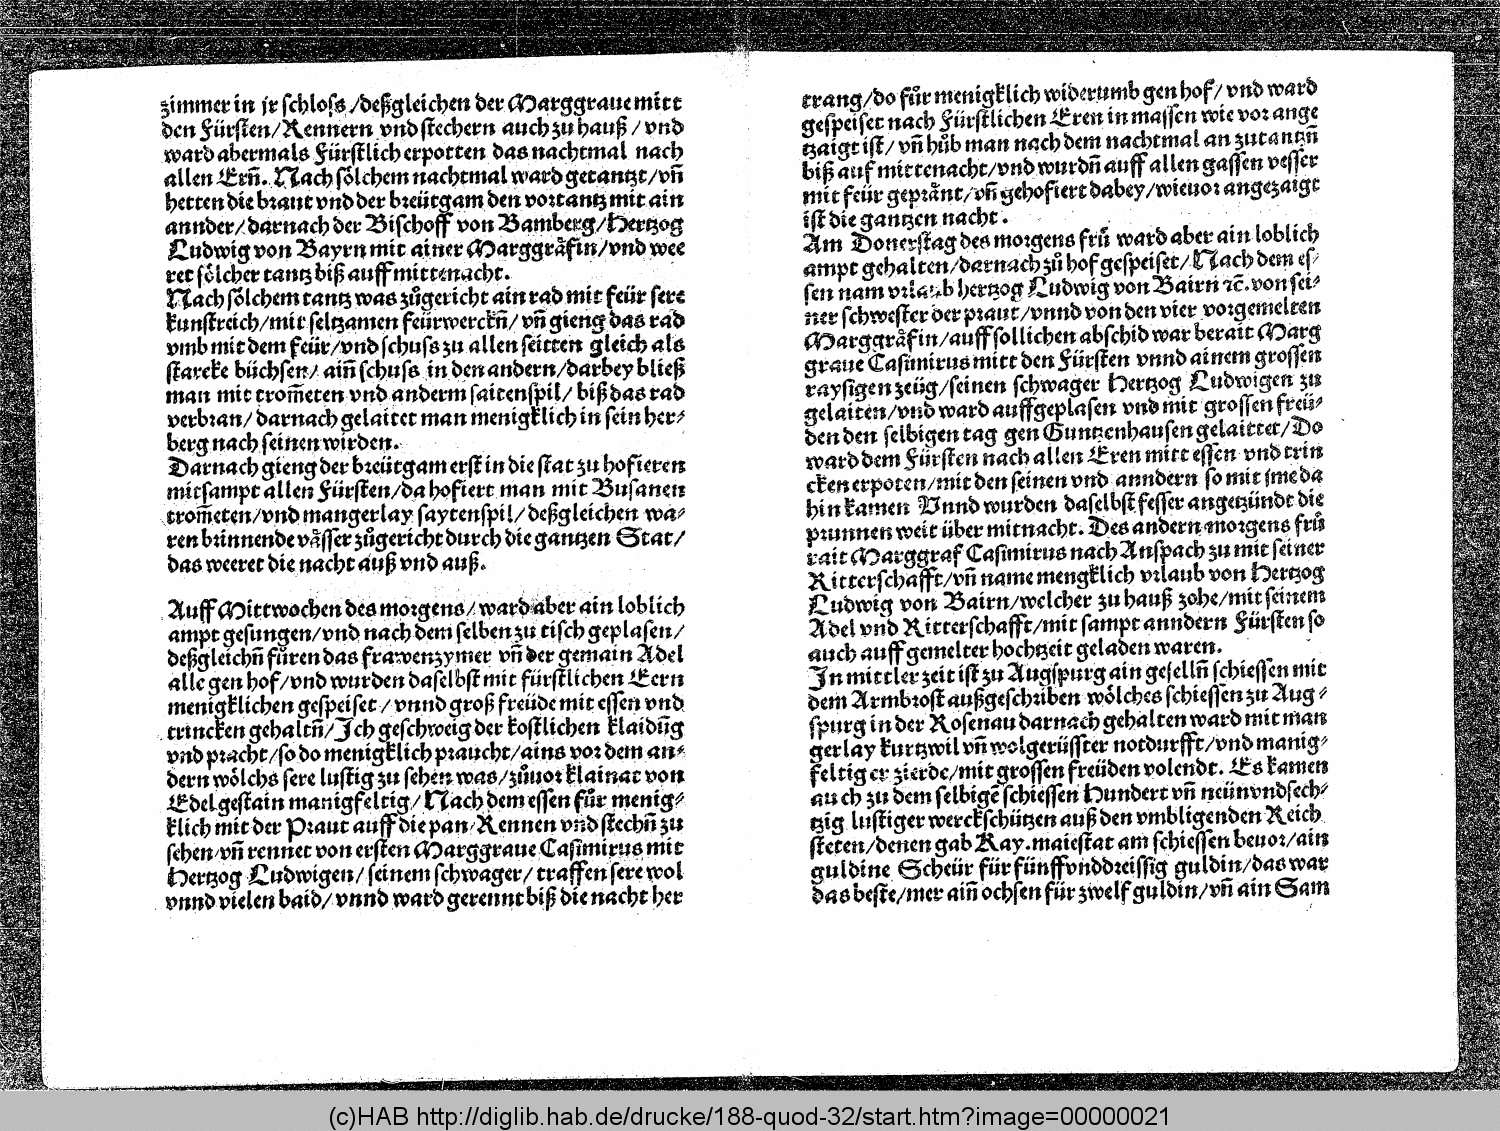 zimmer in jr schloſs /deßgleichen der Marggraue mitt
den Fürſten/Rennern vnd ſtechern auch zu hauß / vnd
ward abermals Fürſtlich erpotten das nachtmal nach
allen Ern̄. Nach ſoͤlchem nachtmal ward getantzt/vn̄
hetten die braut vnd der breütgam den vortantz mit ain
annder/darnach der Biſchoff von Bamberg/Hertzog
Ludwig von Bayrn mit ainer Marggraͤfin/vnd wee
ret ſoͤlcher tantz biß auff mittenacht.
Nach ſoͤlchem tantz was zuͦgericht ain rad mit feür ſere
kunſtreich/mit ſeltzamen feürwerckn̄/vn̄ gieng das rad
vmb mit dem feür/vnd ſchuſs zu allen ſeitten gleich als
ſtarcke büchſen/ ain̄ ſchuſs in den andern/darbey bließ
man mit trom̄eten vnd anderm ſaitenſpil/ biß das rad
verbran/ darnach gelaitet man menigklich in ſein her⸗
berg nach ſeinen wirden.
Darnach gieng der breütgam erſt in die ſtat zu hofieren
mitſampt allen Fürſten/da hofiert man mit Buſanen
trom̄eten/vnd mangerlay ſaytenſpil/deßgleichen wa⸗
ren brinnende vaͤſſer zuͦgericht durch die gantzen Stat/
das weeret die nacht auß vnd auß.
Auff Mittwochen des morgens/ ward aber ain loblich
ampt geſungen/vnd nach dem ſelben zu tiſch geplaſen/
deßgleichn̄ fuͦren das frawenzymer vn̄ der gemain Adel
alle gen hof/vnd wurden daſelbſt mit fürſtlichen Eern
menigklichen geſpeiſet / vnnd groß freüde mit eſſen vnd
trincken gehaltn̄/Ich geſchweig der koſtlichen klaidūg
vnd pracht/ſo do menigklich praucht/ains vor dem an⸗
dern woͤlchs ſere luſtig zu ſehen was/zuͦuor klainat von
Edel geſtain manigfeltig/ Nach dem eſſen fuͦr menig⸗
klich mit der Praut auff die pan/Rennen vnd ſtechn̄ zu
ſehen/vn̄ rennet von erſten Marggraue Caſimirus mit
Hertzog Ludwigen/ ſeinem ſchwager/ traffen ſere wol
vnnd vielen baid/ vnnd ward gerennt biß die nacht her
trang/do fuͦr menigklich widerumb gen hof/ vnd ward
geſpeiſet nach Fürſtlichen Eren in maſſen wie vor ange
tzaigt iſt/ vn̄ huͦb man nach dem nachtmal an zu tantzn̄
biß auf mittenacht/vnd wurdn̄ auff allen gaſſen veſſer
mit feür gepraͤnt/vn̄ gehofiert dabey/wieuor angezaigt
iſt die gantzen nacht.
Am Donerſtag des morgens fruͦ ward aber ain loblich
ampt gehalten/darnach zuͦ hof geſpeiſet/Nach dem eſ⸗
ſen nam vrlaub hertzog Ludwig von Bairn ꝛc̄. von ſei⸗
ner ſchweſter der praut/vnnd von den vier vorgemelten
Marggraͤfin/auff ſollichen abſchid war berait Marg
graue Caſimirus mitt den Fürſten vnnd ainem groſſen
rayſigen zeüg/ſeinen ſchwager Hertzog Ludwigen zu
gelaiten/vnd ward auffgeplaſen vnd mit groſſen freü⸗
den den ſelbigen tag gen Guntzenhauſen gelaittet/Do
ward dem Fürſten nach allen Eren mitt eſſen vnd trin
cken erpoten/mit den ſeinen vnd anndern ſo mit jme da
hin kamen Vnnd wurden daſelbſt feſſer angetzündt die
prunnen weit über mitnacht. Des andern morgens fruͦ
rait Marggraf Caſimirus nach Anſpach zu mit ſeiner
Ritterſchafft/vn̄ name mengklich vrlaub von Hertzog
Ludwig von Bairn/welcher zu hauß zohe/mit ſeinem
Adel vnd Ritterſchafft/mit ſampt anndern Fürſten ſo
auch auff gemelter hochtzeit geladen waren.
In mittler zeit iſt zu Augſpurg ain geſelln̄ ſchieſſen mit
dem Armbroſt außgeſchriben woͤlches ſchieſſen zu Aug⸗
ſpurg in der Roſenau darnach gehalten ward mit man
gerlay kurtzwil vn̄ wolgerüſſter notdurfft/vnd manig⸗
feltiger zierde/mit groſſen freüden volendt. Es kamen
auch zu dem ſelbigē ſchieſſen Hundert vn̄ neünvndſech⸗
tzig luſtiger werckſchützen auß den vmbligenden Reich
ſteten/denen gab Kay. maieſtat am ſchieſſen beuor/ain
guldine Scheür für fünffvnddreiſſig guldin/das war
das beſte/mer ain̄ ochſen für zwelf guldin/vn̄ ain Sam
(c)HAB http://diglib.hab.de/drucke/188-quod-32/start.htm?image=00000021